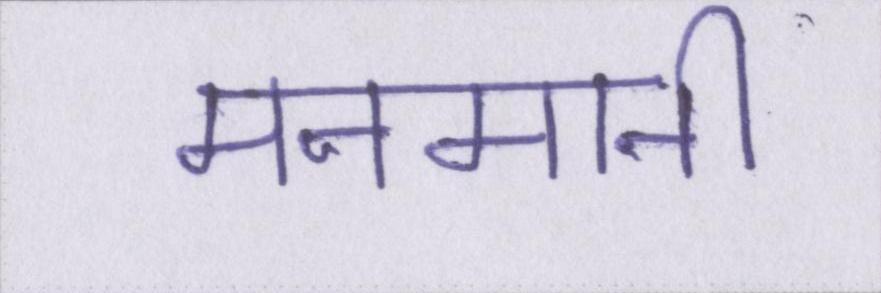 मनमानी